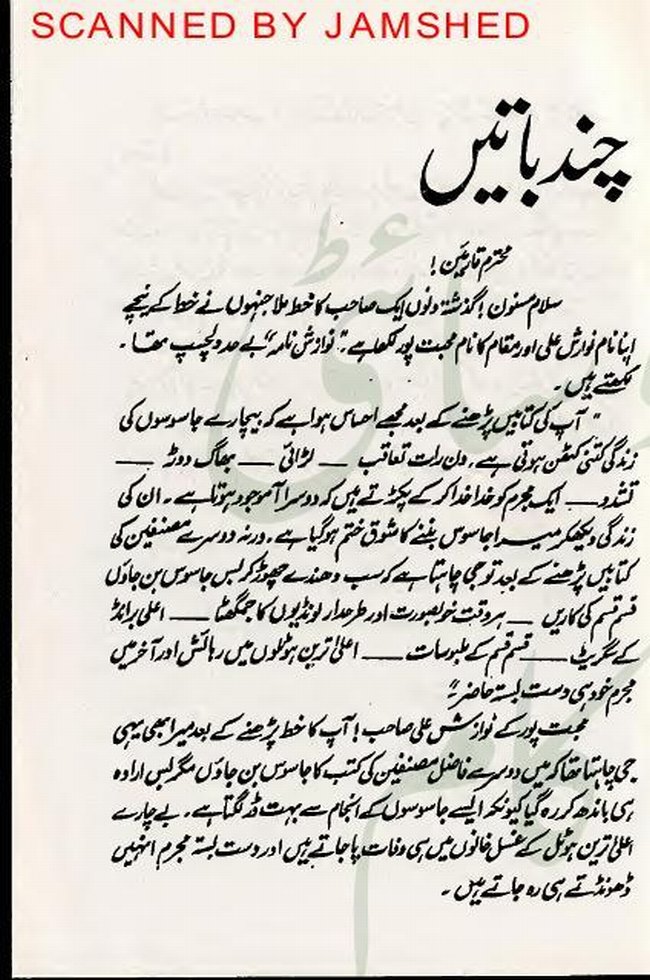 SCANNED BY JAMSHED
چند باتیں
محترم قارئین!
سلام مسنون! گذشتہ دنوں ایک صاحب کا خط ملا جنہوں نے خط کے نیچے
اپنا نام نوازش علی اور مقام کا نام محبت پور لکھا ہے۔ "نوازش نامہ" بے حد دلچسپ تھا۔
لکھتے ہیں۔
"آپ کی کتابیں پڑھنے کے بعد مجھے احساس ہوا ہے کہ بیچارے جاسوسوں کی
زندگی کتنی کٹھن ہوتی ہے۔ دن رات تعاقب — لڑائی — بھاگ دوڑ —
تشدد — ایک مجرم کو خدا خدا کر کے پکڑتے ہیں کہ دوسرا آموجود ہوتا ہے۔ ان کی
زندگی دیکھ کر میرا جاسوس بننے کا شوق ختم ہو گیا ہے۔ ورنہ دوسرے مصنفین کی
کتابیں پڑھنے کے بعد تو جی چاہتا ہے کہ سب دھندے چھوڑ کر بس جاسوس بن جاؤں
قسم قسم کی کاریں — ہر وقت خوبصورت اور طرحدار لونڈیوں کا جمگھٹا — اعلیٰ برانڈ
کے سگریٹ — قسم قسم کے ملبوسات — اعلیٰ ترین ہوٹلوں میں رہائش اور آخر میں
مجرم خود ہی دست بستہ حاضر۔"
محبت پور کے نوازش علی صاحب! آپ کا خط پڑھنے کے بعد میرا بھی یہی
جی چاہتا تھا کہ میں دوسرے فاضل مصنفین کی کتب کا جاسوس بن جاؤں مگر بس ارادہ
ہی باندھ کر رہ گیا کیونکہ ایسے جاسوسوں کے انجام سے بہت ڈر لگتا ہے۔ بے چارے
اعلیٰ ترین ہوٹل کے غسل خانوں میں ہی وفات پا جاتے ہیں اور دست بستہ مجرم انہیں
ڈھونڈتے ہی رہ جاتے ہیں۔